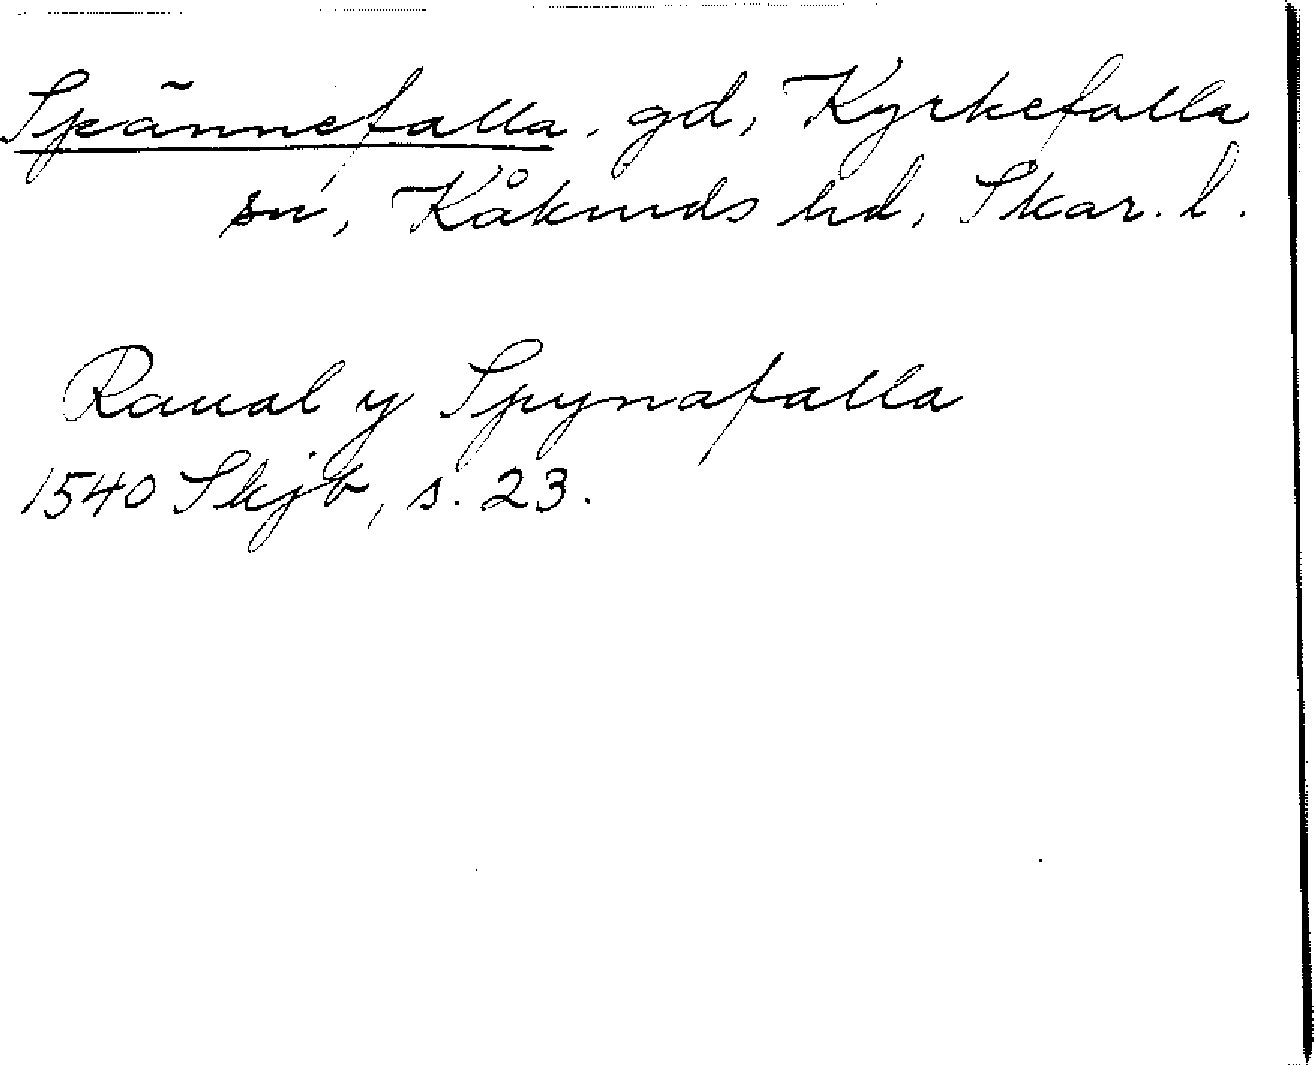 Spännefalla. gd, Kyrkefalla
sn, Kåkinds hd, Skar. l.
Raual y Spynafalla
1540 Skjb, s. 23.